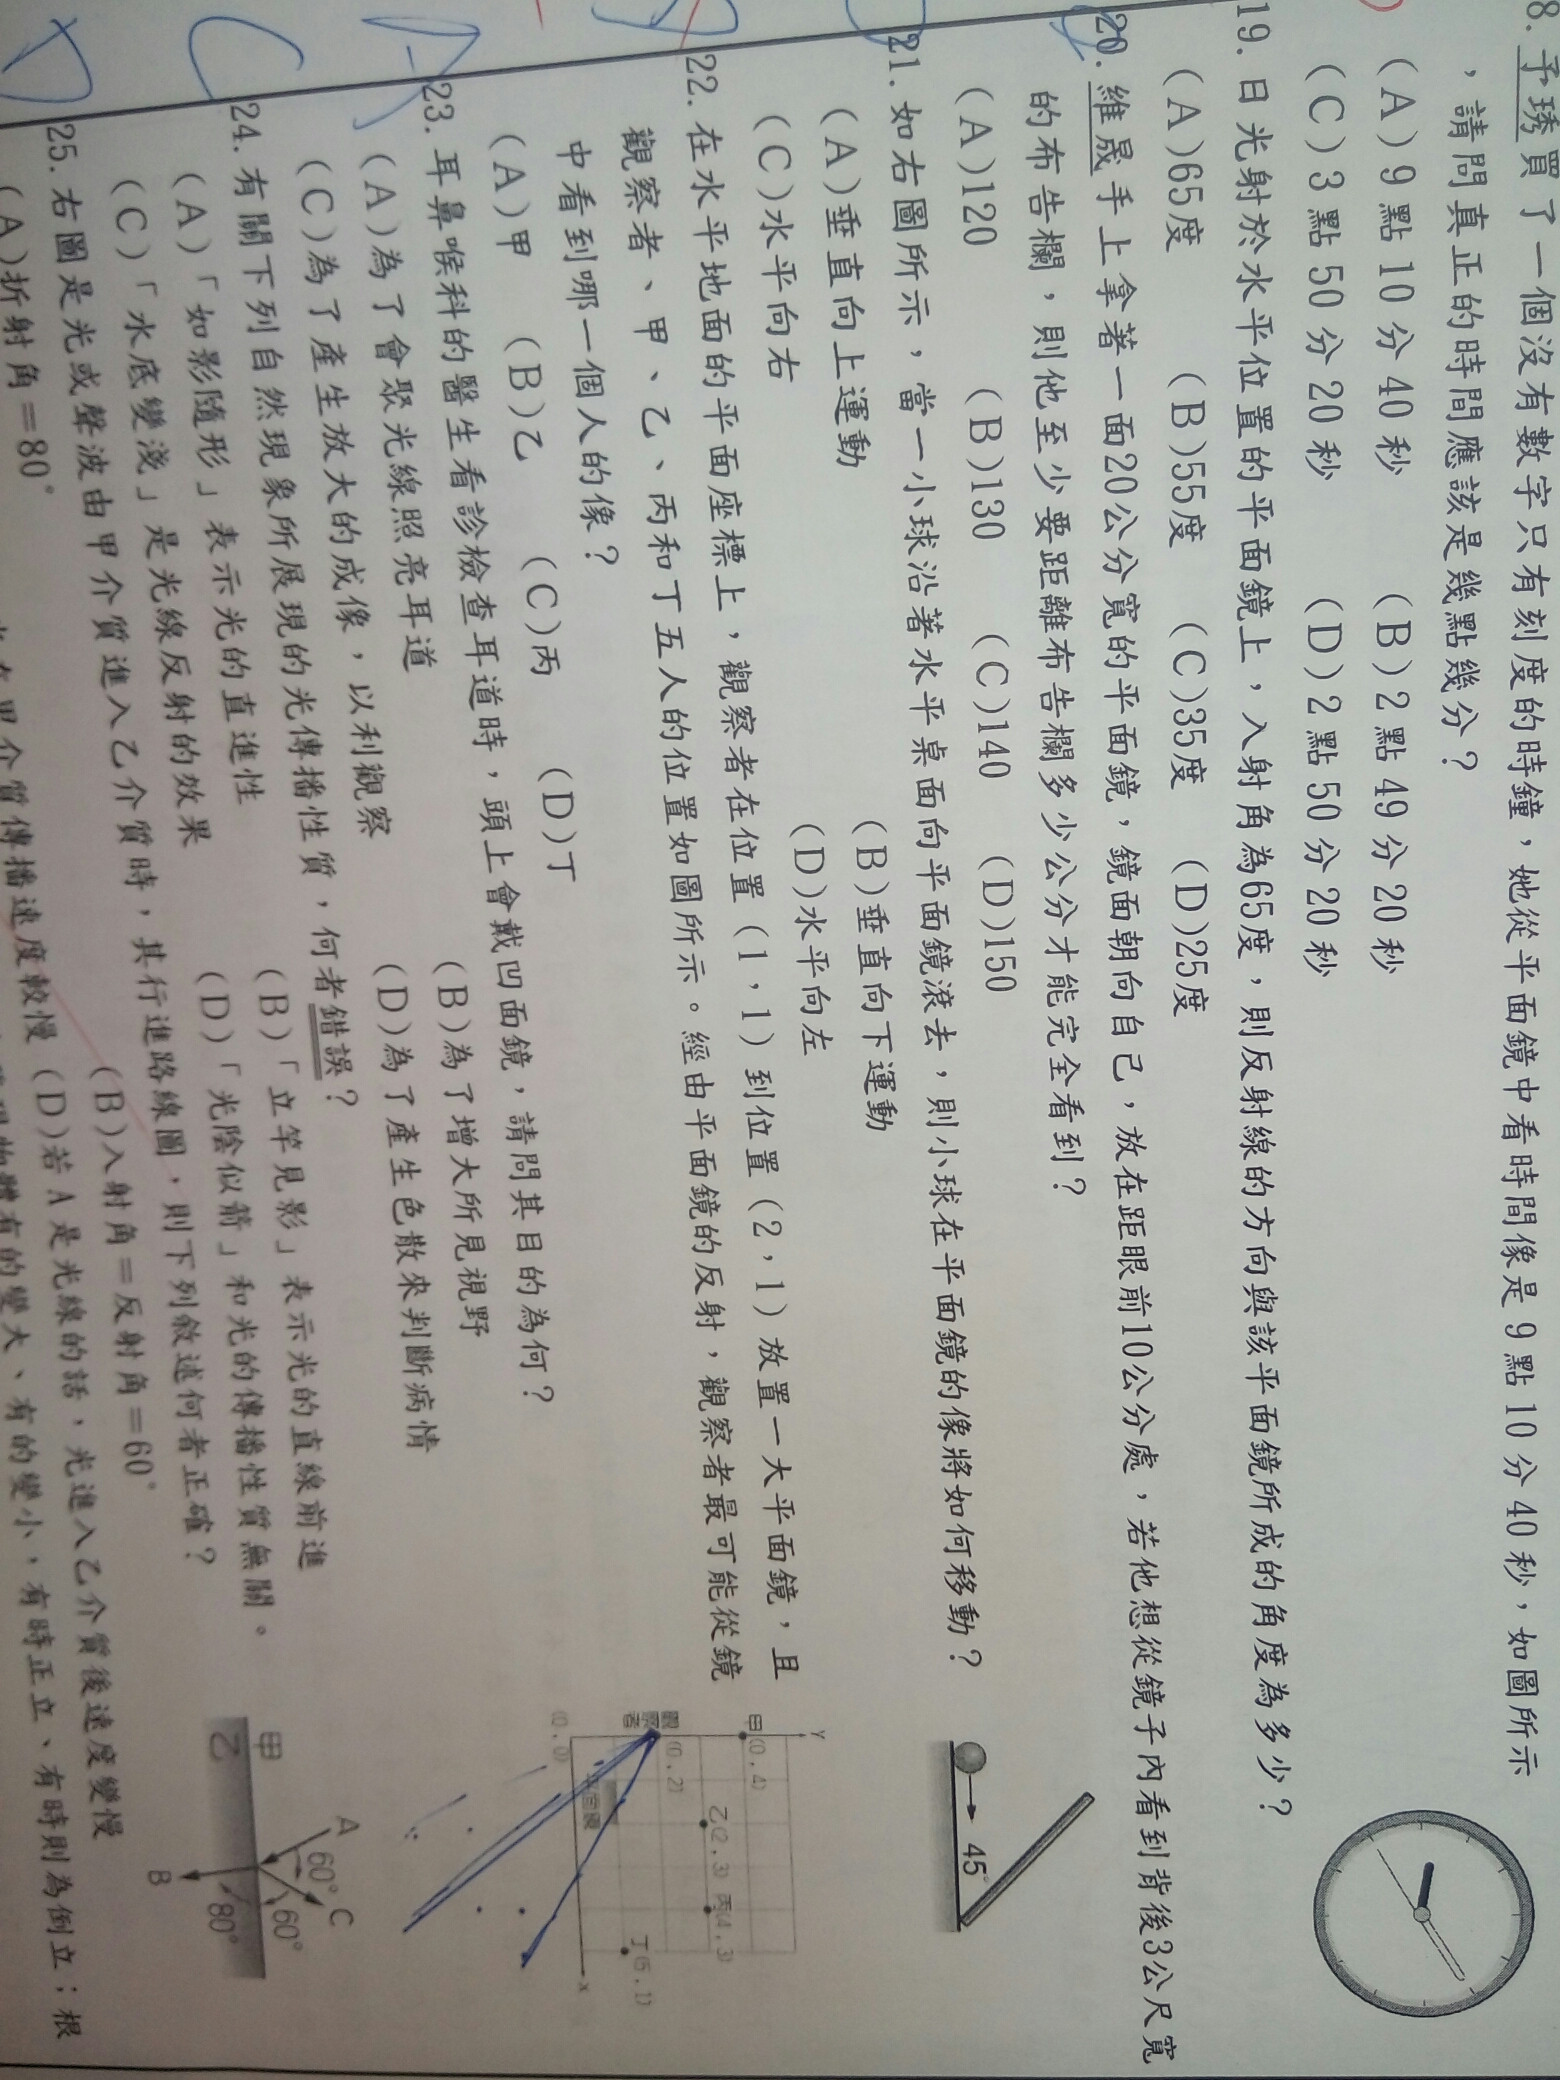 8. 予琇買了一個沒有數字只有刻度的時鐘，她從平面鏡中看時間像是9點10分40秒，如圖所示
，請問真正的時間應該是幾點幾分？
(A)9點10分40秒 (B)2點49分20秒
(C)3點50分20秒 (D)2點50分20秒
19. 日光射於水平位置的平面鏡上，入射角為65度，則反射線的方向與該平面鏡所成的角度為多少？
(A)65度 (B)55度 (C)35度 (D)25度
20. 維晟手上拿著一面20公分寬的平面鏡，鏡面朝向自己，放在距眼前10公分處，若他想從鏡子內看到背後3公尺寬
的布告欄，則他至少要距離布告欄多少公分才能完全看到？
(A)120 (B)130 (C)140 (D)150
21. 如右圖所示，當一小球沿著水平桌面向平面鏡滾去，則小球在平面鏡的像將如何移動？
(A)垂直向上運動 (B)垂直向下運動
(C)水平向右 (D)水平向左
45°
22. 在水平地面的平面座標上，觀察者在位置(1,1)到位置(2,1)放置一大平面鏡，且
觀察者、甲、乙、丙和丁五人的位置如圖所示。經由平面鏡的反射，觀察者最可能從鏡
中看到哪一個人的像？
(A)甲 (B)乙 (C)丙 (D)丁
Y
甲 (0,4)
乙(2,3) 丙(4,3)
觀察者 (0,2)
丁(5,1)
平面鏡
(0,0) x
23. 耳鼻喉科的醫生看診檢查耳道時，頭上會戴凹面鏡，請問其目的為何？
(A)為了會聚光線照亮耳道 (B)為了增大所見視野
(C)為了產生放大的成像，以利觀察 (D)為了產生色散來判斷病情
24. 有關下列自然現象所展現的光傳播性質，何者錯誤？
(A)「如影隨形」表示光的直進性 (B)「立竿見影」表示光的直線前進
(C)「水底變淺」是光線反射的效果 (D)「光陰似箭」和光的傳播性質無關。
25. 右圖是光或聲波由甲介質進入乙介質時，其行進路線圖，則下列敘述何者正確？
(A)折射角＝80° (B)入射角＝反射角＝60°
甲介質傳播速度較慢 (D)若A是光線的話，光進入乙介質後速度變慢
A 60° C
甲 60°
乙 80°
B
物體有的變大、有的變小，有時正立、有時則為倒立；根